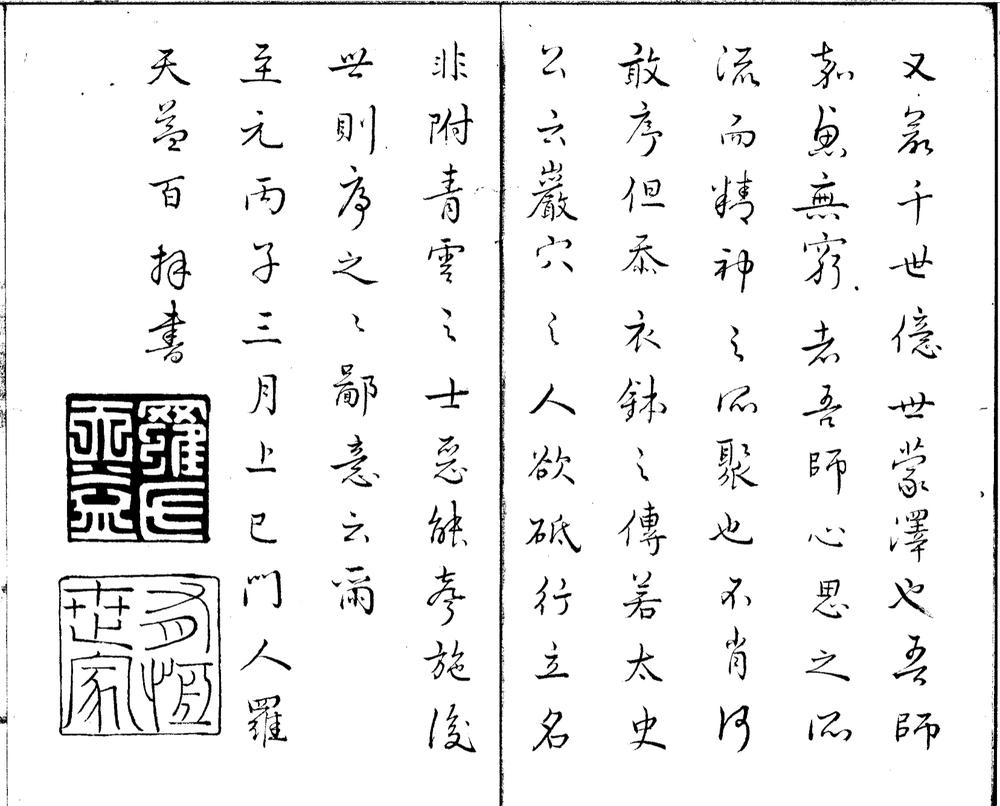 又㝡千世億世蒙澤也吾師
嘉惠無窮者吾師心思之所
流而精神之所聚也不肖何
敢序但忝衣鉢之傳若太史
公云巖穴之人欲砥行立名
非附青雲之士惡能聲施後
世則序之〻鄙意云爾
至元丙子三月上巳門人羅
天益百拜書
羅氏天益
有恆世家